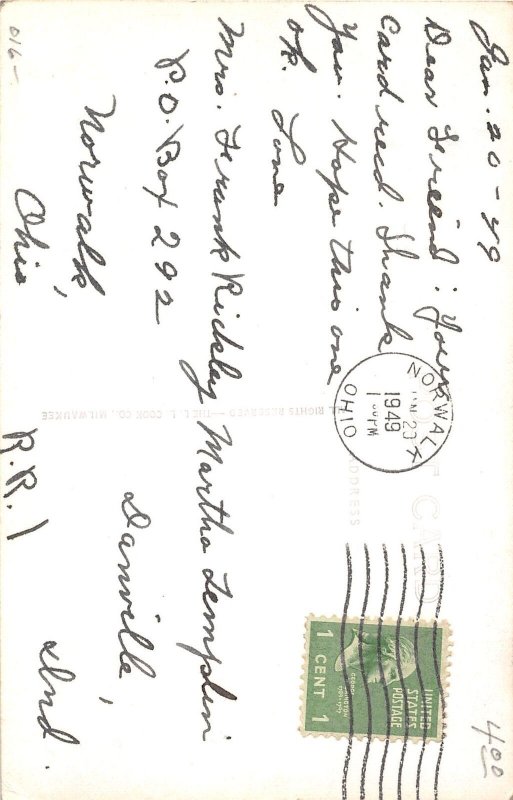 Jan. 20-49
Dear Freind: Your
Card recd. Thank
You. Hope this one
ok. Love
Mrs. Frank Rickley
P.O. Box 292
Norwalk,
Ohio
Martha Templin
Danville,
Ind.
R.R. 1
NORWALK
JAN 20
1949
PM
OHIO
UNITED
STATES
POSTAGE
1 CENT 1
RIGHTS RESERVED — THE L. L. COOK CO., MILWAUKEE
ADDRESS
CARD
016-
4.00